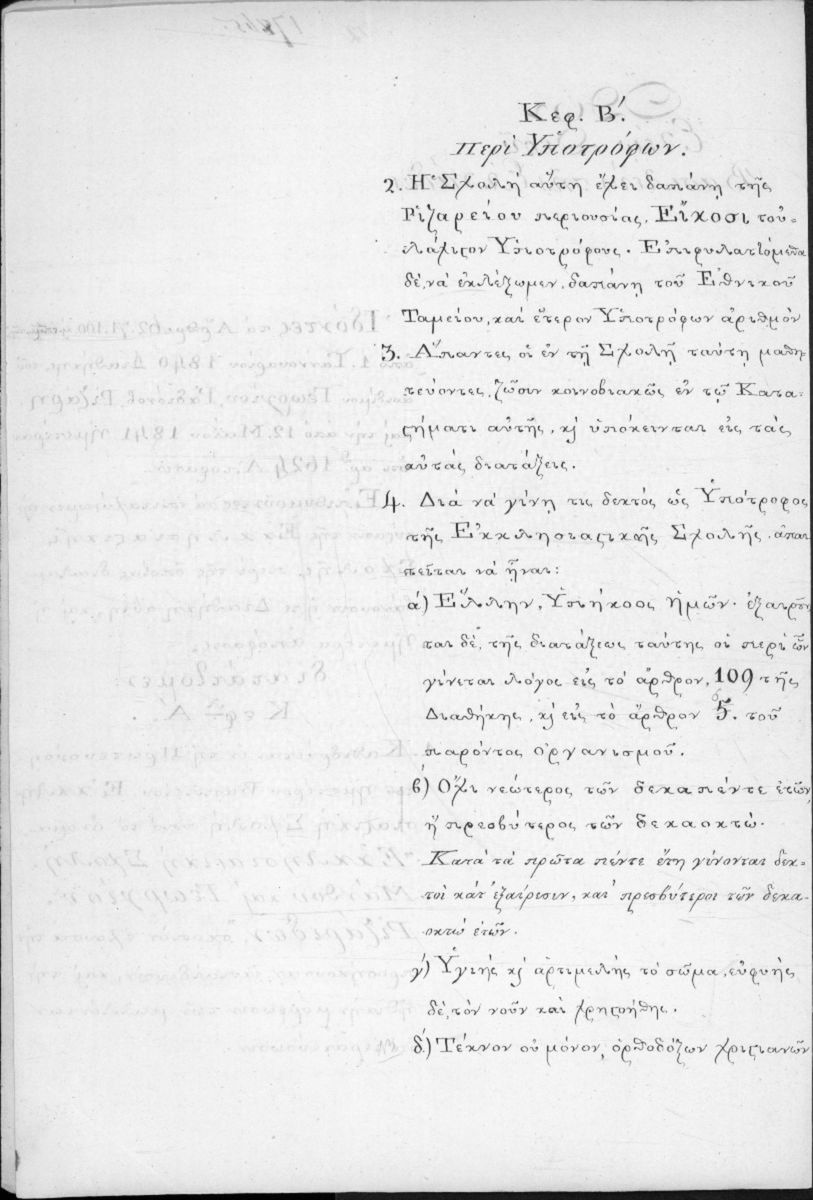 Κεφ. Β΄.
περὶ Ὑποτρόφων.
2. Ἡ Σχολὴ αὕτη ἔχει δαπάνῃ τῆς
Ῥιζαρείου περιουσίας, Εἴκοσι τοὐ-
λάχιϛον Ὑποτρόφους. Ἐπιφυλαττόμεθα
δὲ, νὰ ἐκλέξωμεν, δαπάνῃ τοῦ Ἐθνικοῦ
Ταμείου, καὶ ἕτερον Ὑποτρόφων ἀριθμόν
3. Ἅπαντες οἱ ἐν τῇ Σχολῇ ταύτῃ μαθη-
τεύοντες, ζῶσιν κοινοβιακῶς ἐν τῷ Κατα-
ϛήματι αὐτῆς, κ̣ ὑπόκεινται εἰς τὰς
αὐτὰς διατάξεις.
4. Διὰ νὰ γίνῃ τις δεκτὸς ὡς Ὑπότροφος
τῆς Ἐκκλησιαϛικῆς Σχολῆς, ἀπαι
τεῖται νὰ ἦναι:
ά) Ἕλλην, Ὑπήκοος ἡμῶν· ἐξαιροῦν
ται δὲ, τῆς διατάξεως ταύτης οἱ περὶ ὧν
γίνεται λόγος εἰς τὸ ἄρθρον, 109 τῆς
Διαθήκης, κ̣ εἰς τὸ ἄρθρον 5. τοῦ
παρόντος ὀργανισμοῦ.
β́) Ὄχι νεώτερος τῶν δεκαπέντε ἐτῶν,
ἢ πρεσβύτερος τῶν δεκαοκτώ.
Κατὰ τὰ πρῶτα πέντε ἔτη γίνονται δεκ-
τοὶ κατ' ἐξαίρεσιν, καὶ πρεσβύτεροι τῶν δεκα-
οκτὼ ἐτῶν.
γ́) Ὑγιὴς κ̣ ἀρτιμελὴς τὸ σῶμα, εὐφυὴς
δὲ, τὸν νοῦν καὶ χρηϛοήθης.
δ́) Τέκνον οὐ μόνον, ὀρθοδόξων χριϛιανῶν